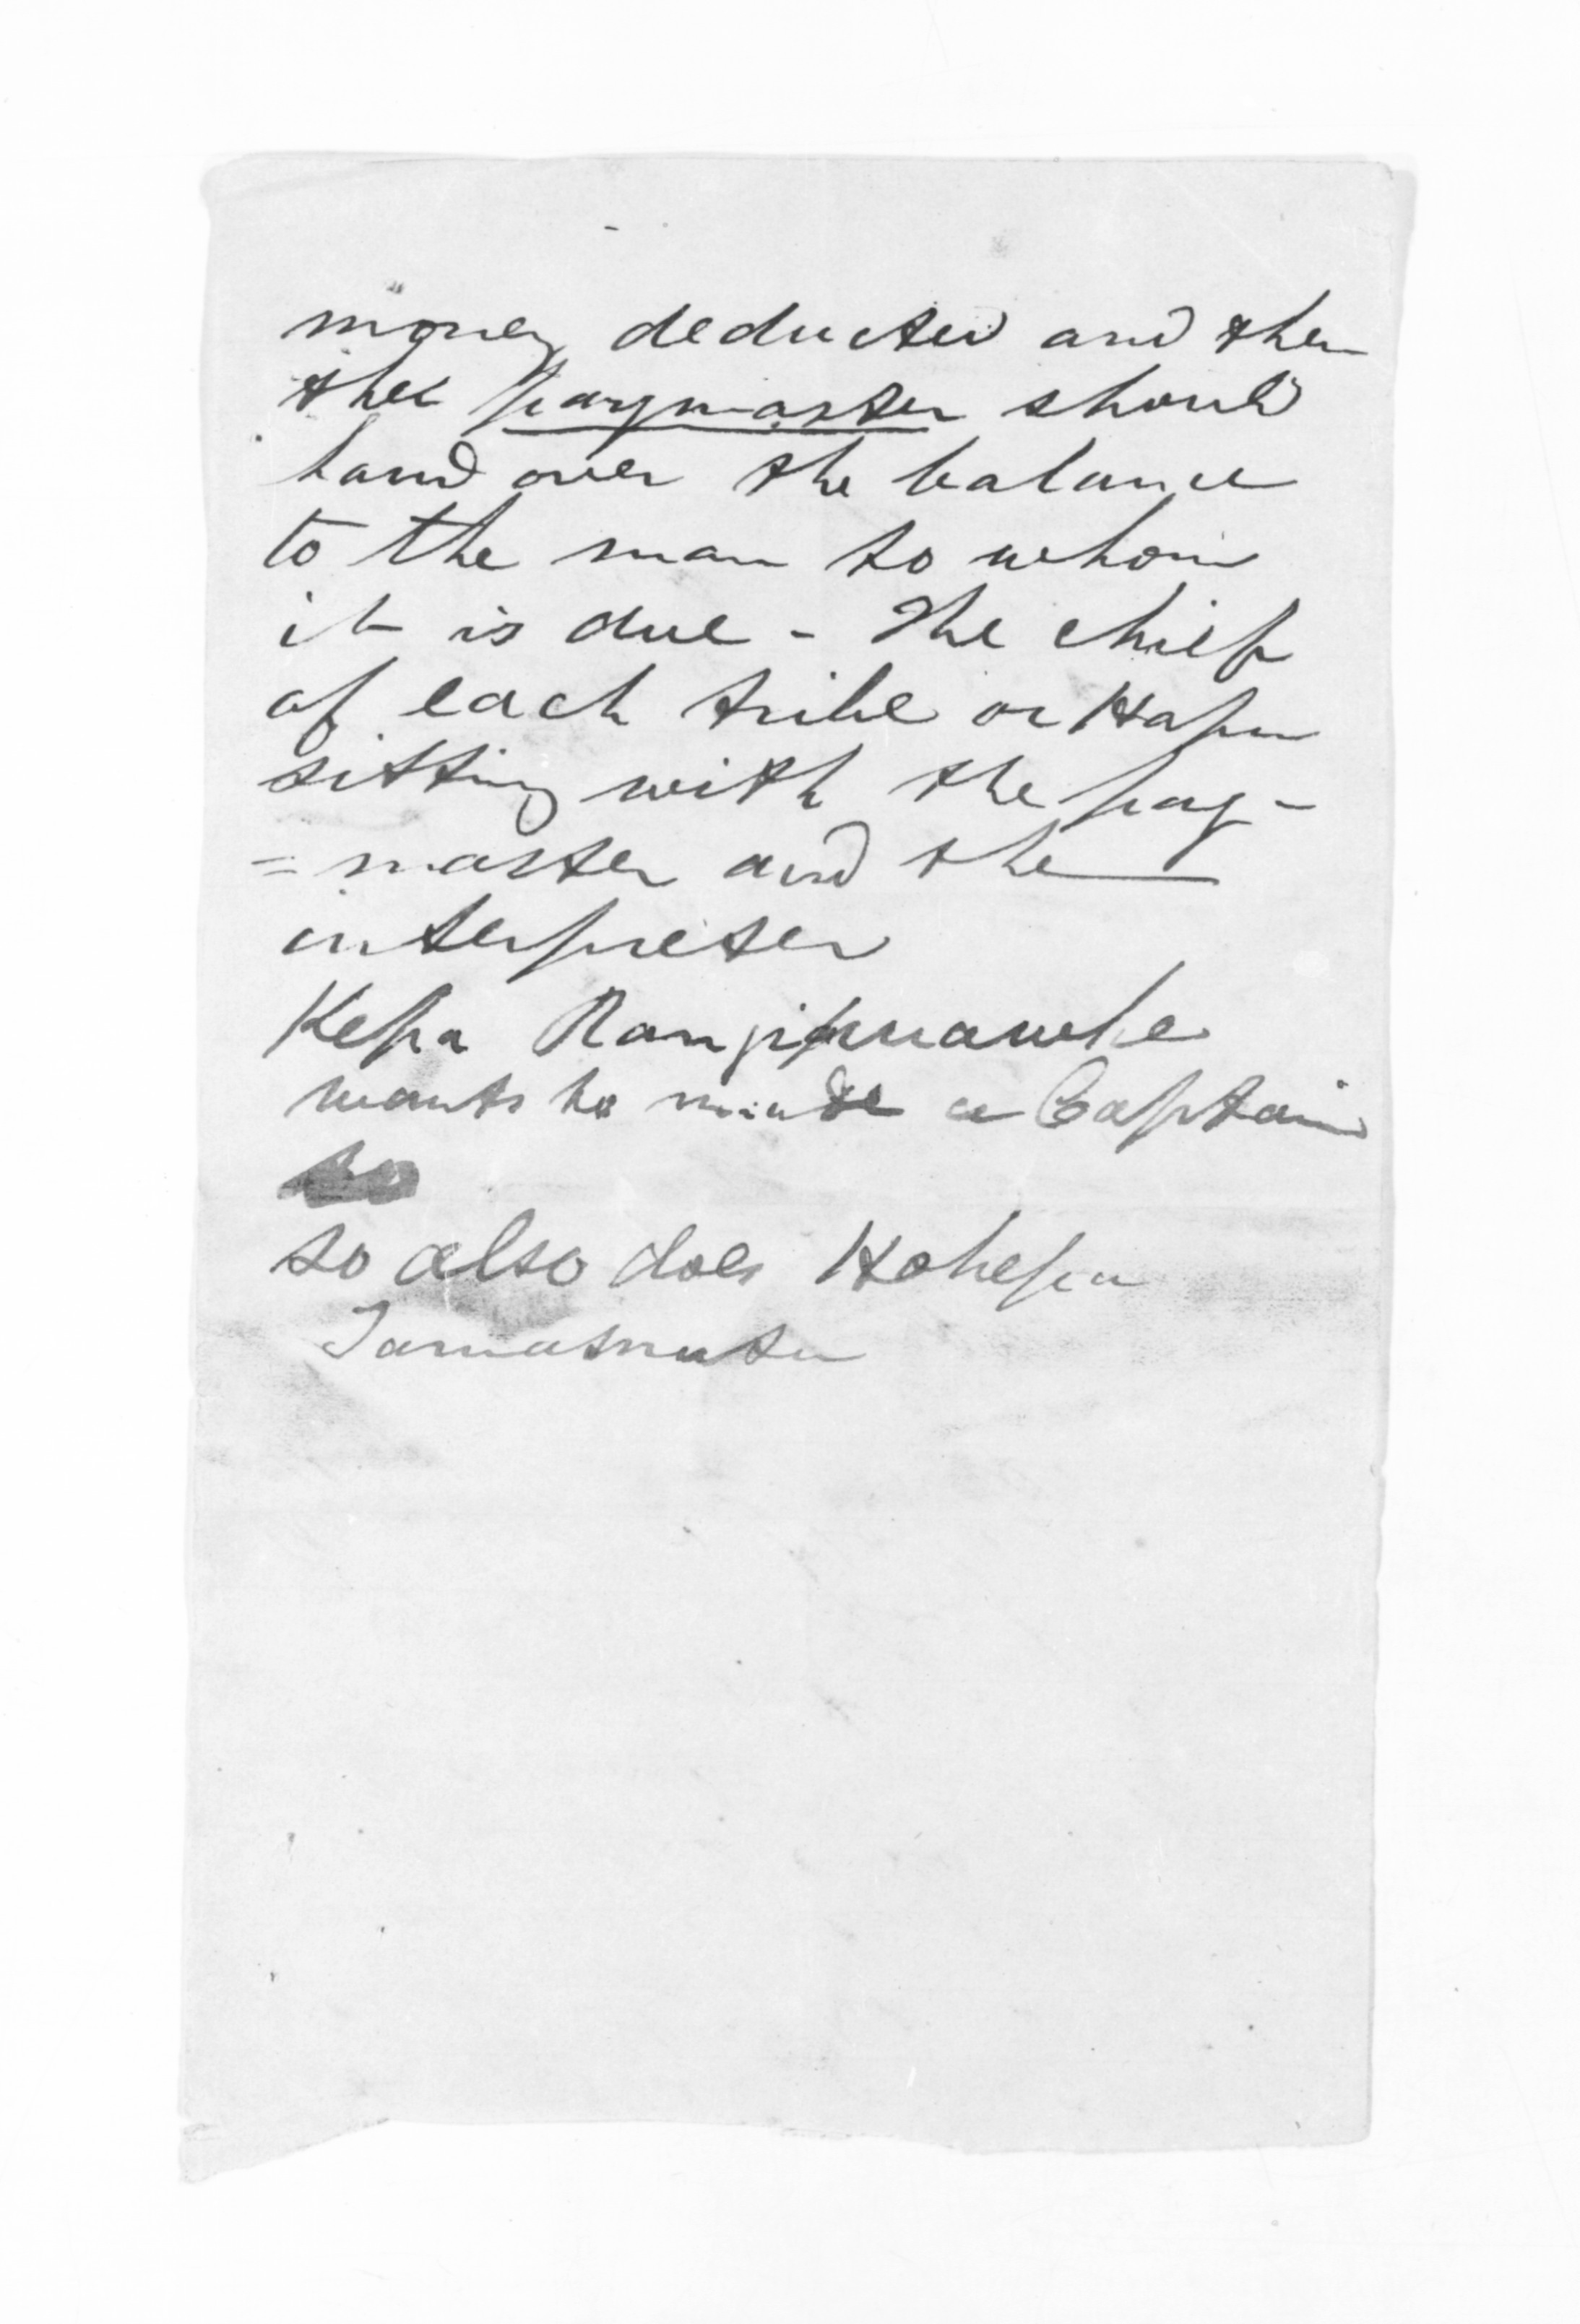 money deducted and then
the paymaster should
hand over the balance
to the man to whom
it is due - The chief
of each tribe or Hapu
sitting with the pay-
=master and the
interpreter
Kepa Rangipuawhe
wants to made a Captain
so also does Hohepa
Tamamutu